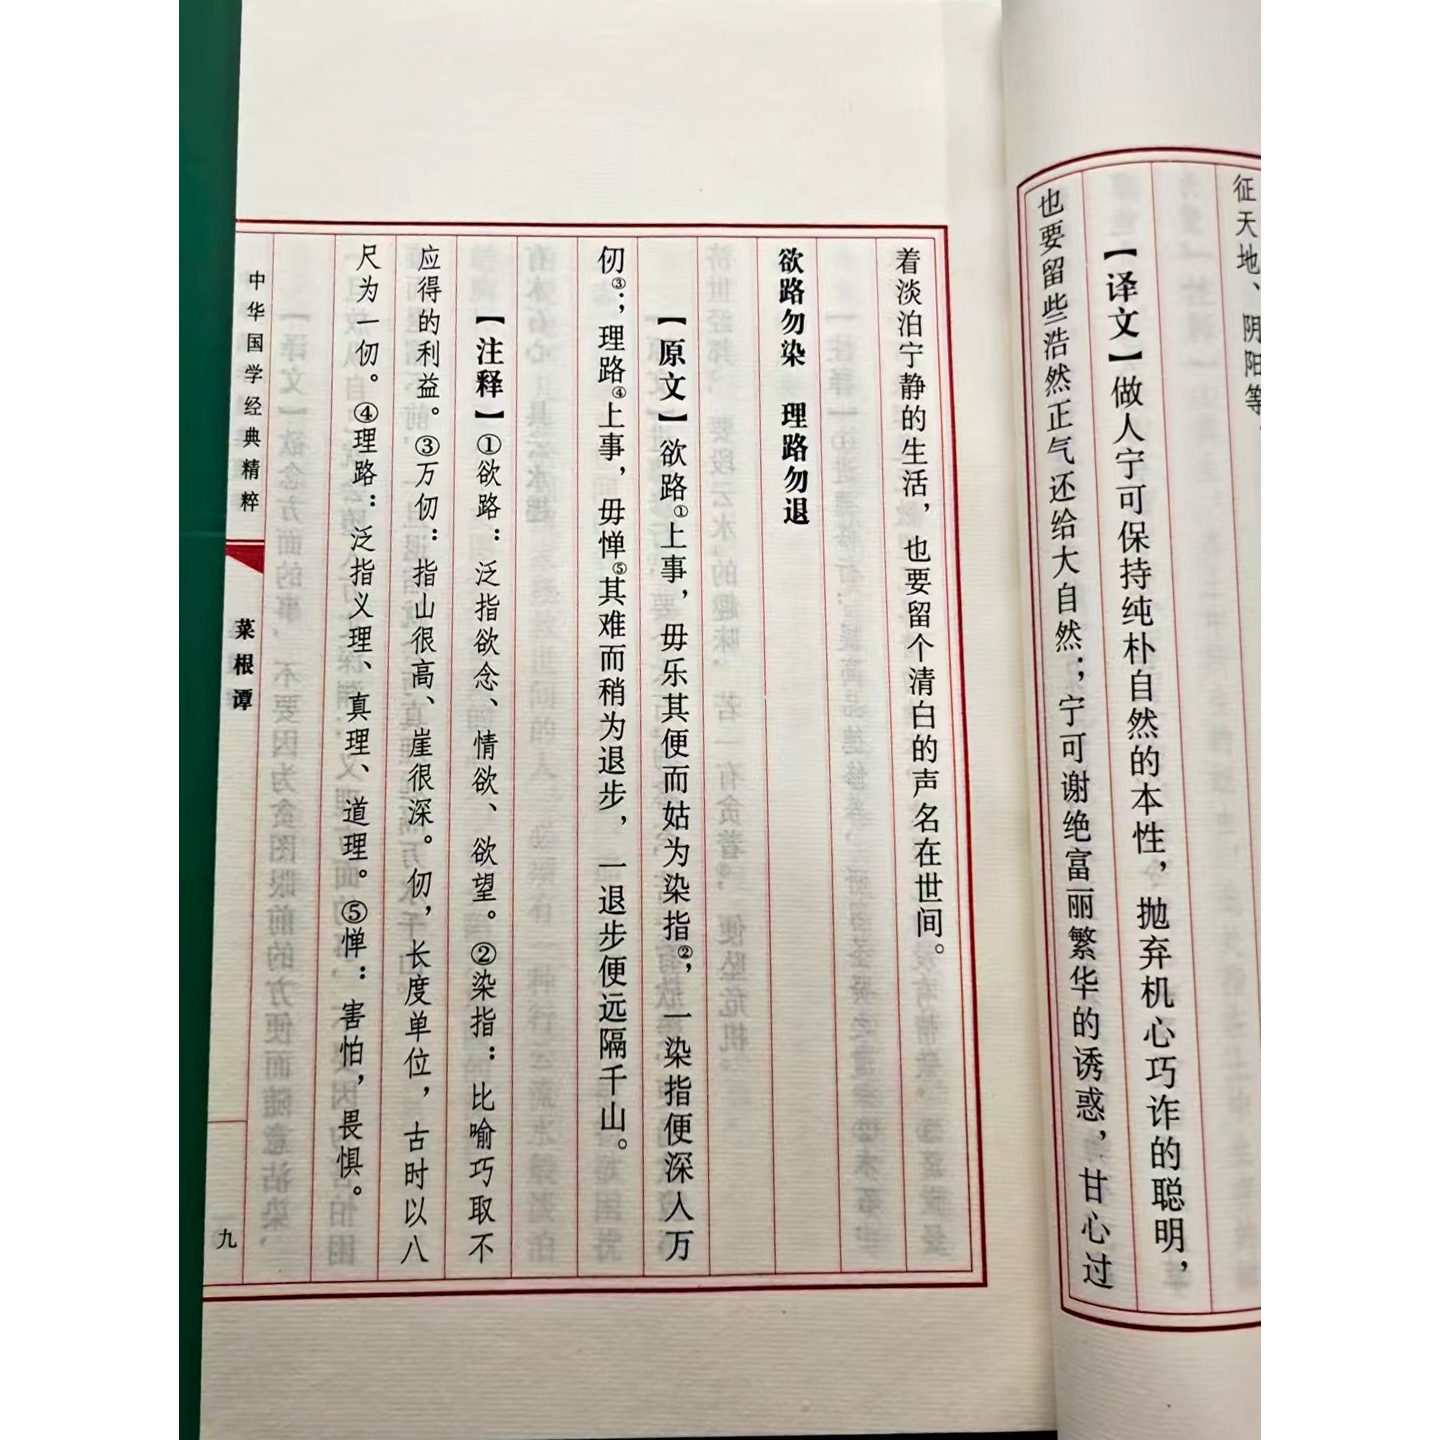 征天地、阴阳等
【译文】做人宁可保持纯朴自然的本性，抛弃机心巧诈的聪明，
也要留些浩然正气还给大自然；宁可谢绝富丽繁华的诱惑，甘心过
着淡泊宁静的生活，也要留个清白的声名在世间。
欲路勿染 理路勿退
【原文】欲路①上事，毋乐其便而姑为染指②，一染指便深入万
仞③；理路④上事，毋惮⑤其难而稍为退步，一退步便远隔千山。
【注释】①欲路：泛指欲念、情欲、欲望。②染指：比喻巧取不
应得的利益。③万仞：指山很高、崖很深。仞，长度单位，古时以八
尺为一仞。④理路：泛指义理、真理、道理。⑤惮：害怕，畏惧。
中华国学经典精粹
菜根谭
九